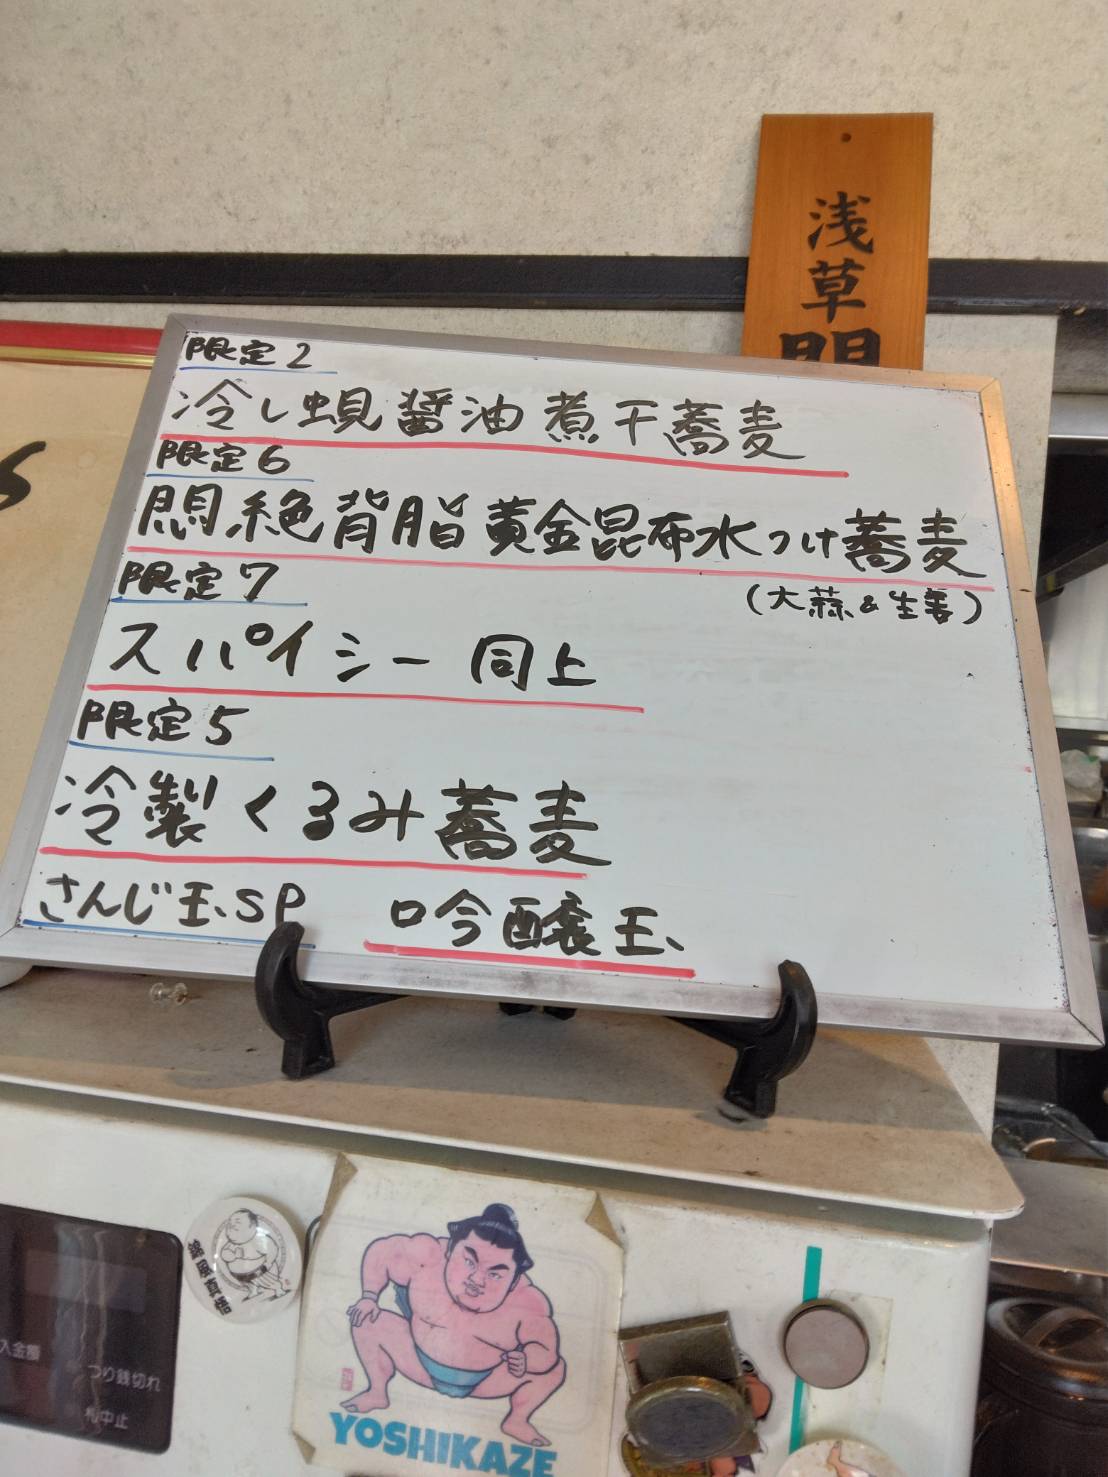 浅草
限定2
冷し蜆醤油煮干蕎麦
限定6
悶絶背脂黄金昆布水つけ蕎麦
(大蒜&生姜)
限定7
スパイシー同上
限定5
冷製くるみ蕎麦
さんじ玉SP 口吟醸玉
入金額
つり銭切れ
札中止
YOSHIKAZE